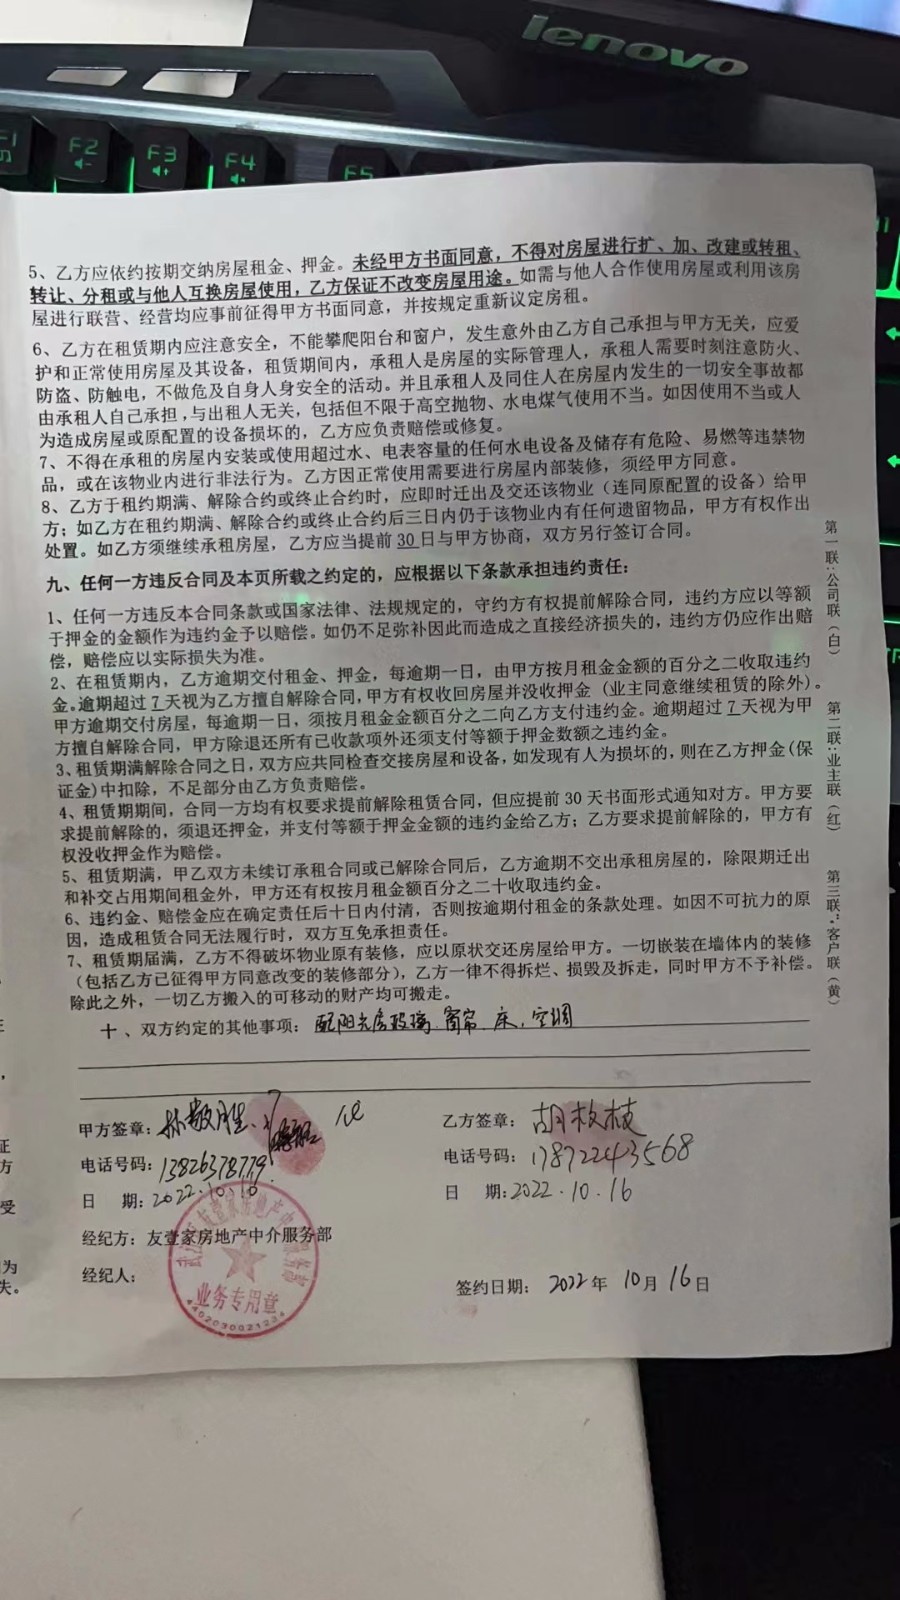 lenovo
F1
F2
F3
F4
F5
5、乙方应依约按期交纳房屋租金、押金。未经甲方书面同意，不得对房屋进行扩、加、改建或转租、
转让、分租或与他人互换房屋使用，乙方保证不改变房屋用途。如需与他人合作使用房屋或利用该房
屋进行联营、经营均应事前征得甲方书面同意，并按规定重新议定房租。
6、乙方在租赁期内应注意安全，不能攀爬阳台和窗户，发生意外由乙方自己承担与甲方无关，应爱
护和正常使用房屋及其设备，租赁期间内，承租人是房屋的实际管理人，承租人需要时刻注意防火、
防盗、防触电，不做危及自身人身安全的活动。并且承租人及同住人在房屋内发生的一切安全事故都
由承租人自己承担，与出租人无关，包括但不限于高空抛物、水电煤气使用不当。如因使用不当或人
为造成房屋或原配置的设备损坏的，乙方应负责赔偿或修复。
7、不得在承租的房屋内安装或使用超过水、电表容量的任何水电设备及储存有危险、易燃等违禁物
品，或在该物业内进行非法行为。乙方因正常使用需要进行房屋内部装修，须经甲方同意。
8、乙方于租约期满、解除合约或终止合约时，应即时迁出及交还该物业（连同原配置的设备）给甲
方；如乙方在租约期满、解除合约或终止合约后三日内仍于该物业内有任何遗留物品，甲方有权作出
处置。如乙方须继续承租房屋，乙方应当提前30日与甲方协商，双方另行签订合同。
九、任何一方违反合同及本页所载之约定的，应根据以下条款承担违约责任：
1、任何一方违反本合同条款或国家法律、法规规定的，守约方有权提前解除合同，违约方应以等额
于押金的金额作为违约金予以赔偿。如仍不足弥补因此而造成之直接经济损失的，违约方仍应作出赔
偿，赔偿应以实际损失为准。
2、在租赁期内，乙方逾期交付租金、押金，每逾期一日，由甲方按月租金金额的百分之二收取违约
金。逾期超过7天视为乙方擅自解除合同，甲方有权收回房屋并没收押金（业主同意继续租赁的除外）。
甲方逾期交付房屋，每逾期一日，须按月租金金额百分之二向乙方支付违约金。逾期超过7天视为甲
方擅自解除合同，甲方除退还所有已收款项外还须支付等额于押金数额之违约金。
3、租赁期满解除合同之日，双方应共同检查交接房屋和设备，如发现有人为损坏的，则在乙方押金（保
证金）中扣除，不足部分由乙方负责赔偿。
4、租赁期期间，合同一方均有权要求提前解除租赁合同，但应提前30天书面形式通知对方。甲方要
求提前解除的，须退还押金，并支付等额于押金金额的违约金给乙方；乙方要求提前解除的，甲方有
权没收押金作为赔偿。
5、租赁期满，甲乙双方未续订承租合同或已解除合同后，乙方逾期不交出承租房屋的，除限期迁出
和补交占用期间租金外，甲方还有权按月租金额百分之二十收取违约金。
6、违约金、赔偿金应在确定责任后十日内付清，否则按逾期付租金的条款处理。如因不可抗力的原
因，造成租赁合同无法履行时，双方互免承担责任。
7、租赁期届满，乙方不得破坏物业原有装修，应以原状交还房屋给甲方。一切嵌装在墙体内的装修
（包括乙方已征得甲方同意改变的装修部分），乙方一律不得拆烂、损毁及拆走，同时甲方不予补偿。
除此之外，一切乙方搬入的可移动的财产均可搬走。
十、双方约定的其他事项：配阳光房玻璃、窗帘、床、空调
甲方签章：
电话号码：13826378779
日 期：2022.10.16
经纪方：友壹家房地产中介服务部
经纪人：
乙方签章：胡枚枝
电话号码：17872243568
日 期：2022.10.16
签约日期：2022年10月16日
友壹家房地产中介服务部
业务专用章
4402030021234
第一联：公司联（白）
第二联：业主联（红）
第三联：客户联（黄）